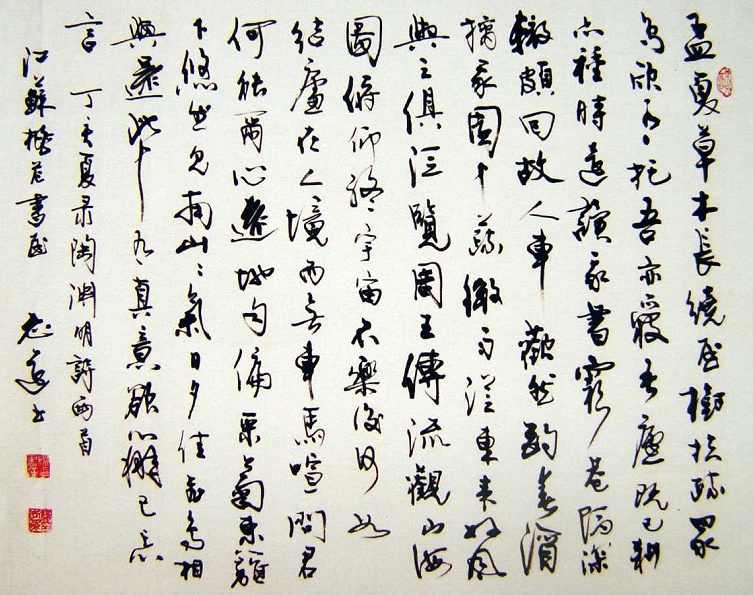 孟夏草木長繞屋樹扶疏眾
鳥欣有托吾亦愛吾廬既已耕
亦種時還讀我書窮巷隔深
轍頗回故人車歡然酌春酒
摘我園中蔬微雨從東來好風
與之俱泛覽周王傳流觀山海
圖俯仰終宇宙不樂復何如
結廬在人境而無車馬喧問君
何能爾心遠地自偏采菊東籬
下悠然見南山々氣日夕佳飛鳥相
與還此中有真意欲辨已忘
言 丁亥夏录陶淵明詩兩首
江蘇 書